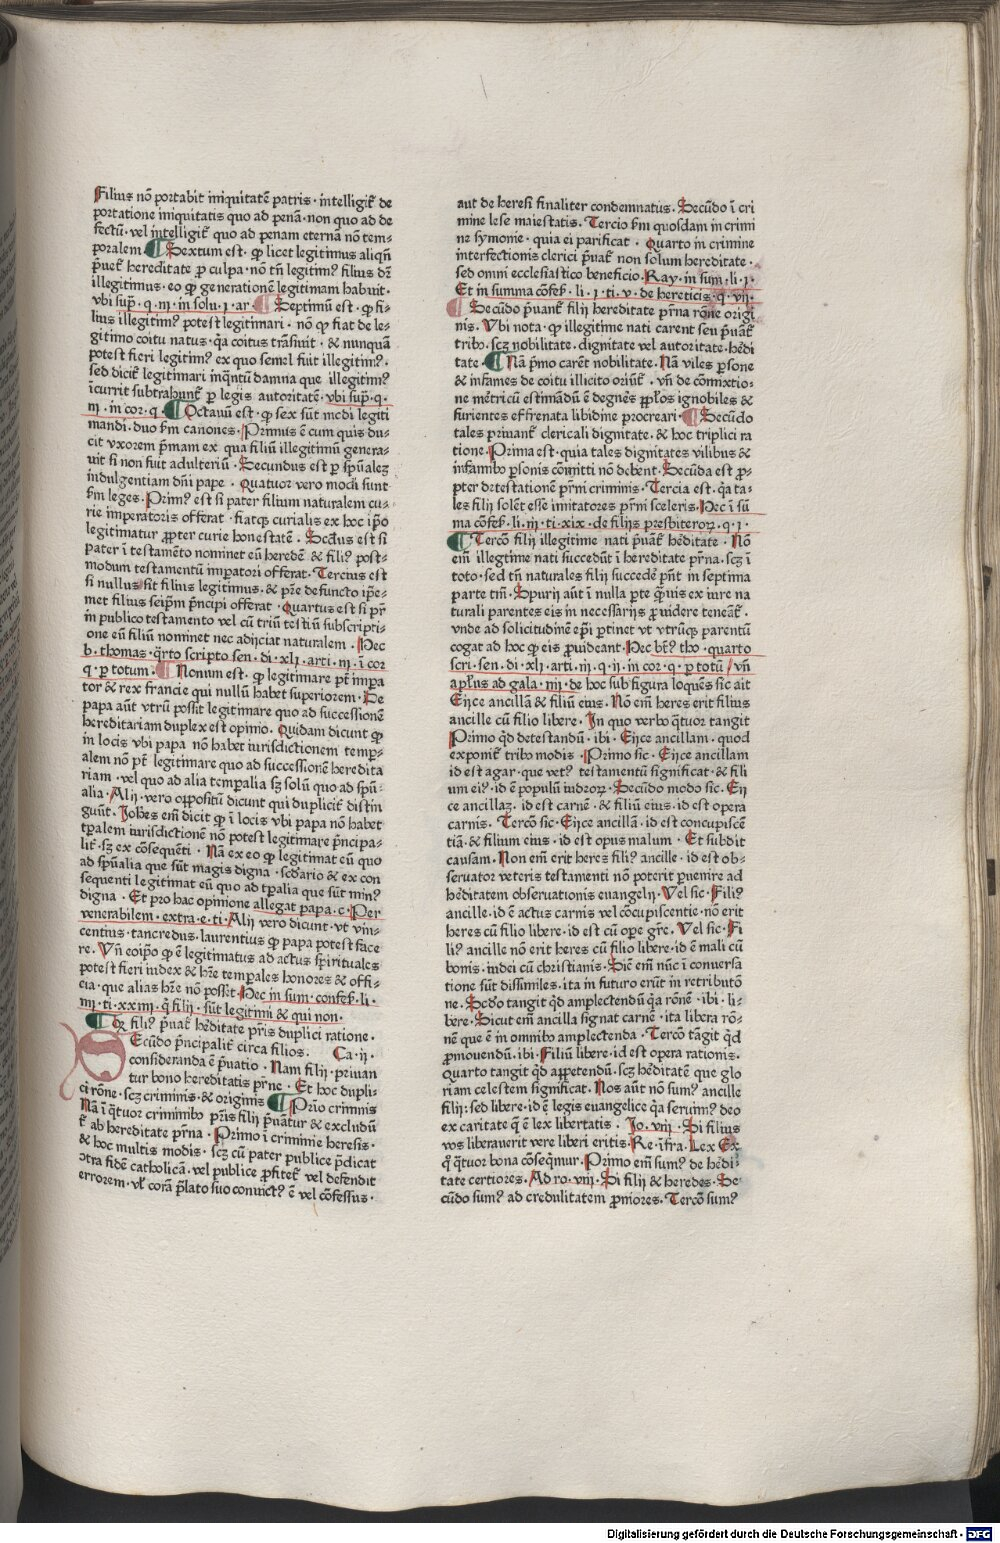 Filius nō portabit iniquitatē patris · intelligit᷑ de
portatione iniquitatis quo ad penā · non quo ad de
fectū · vel intelligit᷑ quo ad penam eternā nō tem⸗
poralem ¶ Sextum est · ꝙ licet legitimus aliqñ
p̄uet᷑ hereditate ꝑ culpa · no tñ legitimꝰ filius dr̄
illegitimus · eo ꝙ generationē legitimam habuit ·
vbi sup̄ · q · iij · in solu · i · ar · ¶ Septimū est · ꝙ fi⸗
lius illegitimꝰ potest legitimari · nō ꝙ fiat de le⸗
gitimo coitu natus · q̄a coitus trāsiuit · & nunquā
potest fieri legitimꝰ ex quo semel fuit illegitimꝰ ·
sed dicit᷑ legitimari inq̄ntū damna que illegitimꝰ
īcurrit subtrahunt᷑ ꝑ legis autoritatē · vbi sup̄ · q ·
iij · in cor · q · ¶ Octauū est · ꝙ sex sūt modi legiti
mandi · duo ẜm canones · Primus ē cum quis du⸗
cit vxorem p̄mam ex qua filiū illegitimū genera⸗
uit si non fuit adulteriū · Secundus est ꝑ sp̄ualeꝫ
indulgentiam dn̄i pape · Quatuor vero modi sunt
ẜm leges · Primꝰ est si pater filium naturalem cu⸗
rie imperatoris offerat · fiatqꝫ curialis ex hoc ip̄o
legitimatur ꝓpter curie honestatē · Scd̄us est si
pater ī testamēto nominet eū heredē & filiꝰ post⸗
modum testamentū imꝑatori offerat · Tercius est
si nullus sit filius legitimus · & pr̄e defuncto ip̄e⸗
met filius seip̄m p̄ncipi offerat · Quartus est si pr̄
in publico testamento vel cū triū testiū subscripti⸗
one eū filiū nominet nec adijciat naturalem · Hec
b · thomas · q̄rto scripto sen · di · xlj · arti · iij · ī cor
q · ꝑ totum · ¶ Nonum est · ꝙ legitimare pt̄ imꝑa
tor & rex francie qui nullū habet superiorem · De
papa aūt vtrū possit legitimare quo ad successionē
hereditariam duplex est opinio · Quidam dicunt ꝙ
in locis vbi papa nō habet iurisdictionem temꝑ⸗
alem nō pt̄ legitimare quo ad successionē heredita
riam · vel quo ad alia temꝑalia sꝫ solū quo ad sp̄u⸗
alia · Alij vero oppositū dicunt qui duplicit᷑ distin
gūnt · Joh̄es em̄ dicit ꝙ ī locis vbi papa nō habet
tꝑalem iurisdictionē nō potest legitimare p̄ncipa⸗
lit᷑ · sꝫ ex cōsequēti · Nā ex eo ꝙ legitimat eū quo
ad sp̄ualia que sūt magis digna · scd̄ario & ex con
sequenti legitimat eū quo ad tꝑalia que sūt minꝰ
digna · Et pro hac opinione allegat papa · c · Per
venerabilem · extra · e · ti · Alij vero dicunt · vt vin⸗
centius · tancredus · laurentius ꝙ papa potest face
re · Vn̄ eoip̄o ꝙ ē legitimatus ad actus sp̄irituales
potest fieri iudex & hr̄e temꝑales honores & offi⸗
cia · que alias hr̄e nō posset · Hec in sum · confes᷑ · li ·
iiij · ti · xxiiij · q̄ filij · sūt legitimi & qui non ·
¶ Qꝫ filiꝰ p̄uat᷑ h̄editate pr̄is duplici ratione ·
Secūdo p̄ncipalit᷑ circa filios · Ca · ij ·
consideranda ē p̄uatio · Nam filij priuan
tur bono hereditatis pr̄ne · Et hoc dupli⸗
ci rōne · scꝫ criminis · & originis ¶ Prīo criminis
Nā ī q̄tuor criminibꝰ pr̄is filij p̄uātur & excludū
t᷑ ab hereditate pr̄na · Primo ī crimine heresis ·
& hoc multis modis · scꝫ cū pater publice p̄dicat
ↄtra fidē catholicā · vel publice ꝓfitet᷑ vel defendit
errorem · vl᷑ corā p̄lato suo conuictꝰ ē vel cōfessus ·
aut de heresi finaliter condemnatus · Secūdo ī cri
mine lese maiestatis · Tercio ẜm quosdam in crimi
ne symonie · quia ei parificat᷑ · Quarto in crimine
interfectionis clerici p̄uat᷑ non solum hereditate ·
sed omni ecclesiastico beneficio · Ray · in sum · li · i ·
Et in summa cōfes᷑ · li · i · ti · v · de hereticis · q · vij ·
¶ Secūdo p̄uant᷑ filij hereditate pr̄na rōne origi
nis · Vbi nota · ꝙ illegitime nati carent seu p̄uāt᷑
tribꝰ · scꝫ nobilitate · dignitate vel autoritate · h̄edi
tate · ¶ Nā p̄mo carēt nobilitate · Nā viles ꝑsone
& infames de coitu illicito oriūt᷑ · vn̄ de cōmixtio⸗
ne mēt̄ricū estimādū ē degnēs p̄plos ignobiles &
furientes effrenata libidine procreari · ¶ Secūdo
tales priuant᷑ clericali dignitate · & hoc triplici ra
tione · Prima est · quia tales dignitates vilibus &
infamibꝰ ꝑsonis cōmitti nō debent · Secūda est ꝓ⸗
pter detestationē pr̄ni criminis · Tercia est · q̄a ta⸗
les filij solēt esse imitatores pr̄ni sceleris · Hec ī sū
ma cōfes᷑ · li · iij · ti · xix · de filijs presbiteroꝝ · q · i ·
¶ Tercō filij illegitime nati p̄uāt᷑ h̄editate · Nō
em̄ illegtime nati succedūt ī hereditate pr̄na · scꝫ ī
toto · sed tn̄ naturales filij succedē pn̄t in septima
parte tm̄ · Spurij aūt ī nulla pte q̄uis ex iure na
turali parentes eis in necessarijs ꝓuidere teneāt᷑ ·
vnde ad solicitudinē ep̄i ꝑtinet vt vtrūqꝫ parentū
cogat ad hoc ꝙ eis ꝓuideant · Hec bt̄ꝰ tho · quarto
scri · sen · di · xlj · arti · iij · q · ij · in cor · q · ꝑ totū / vn̄
ap̄lus ad gala · iiij · de hoc sub figura loquēs sic ait
Eijce ancillā & filiū eius · Nō em̄ heres erit filius
ancille cū filio libere · In quo verbo q̄tuor tangit
Primo qd̄ detestandū · ibi · Eijce ancillam · quod
exponit᷑ tribꝰ modis · Primo sic · Eijce ancillam
id est agar · que vetꝰ testamentū significat · & fili
um eiꝰ · id ē populū iudeoꝝ · Secūdo modo sic · Eij
ce ancillaꝫ · id est carnē · & filiū eius · id est opera
carnis · Tercō sic · Eijce ancillā · id est concupiscē
tiā · & filium eius · id est opus malum · Et subdit
causam · Non em̄ erit heres filiꝰ ancille · id est ob⸗
seruator veteris testamenti nō poterit ꝑuenire ad
h̄editatem obseruationis euangelij · Vel sic · Filiꝰ
ancille · id ē actus carnis vel cōcupiscentie · nō erit
heres cū filio libere · id est cū oꝑe gr̄e · Vel sic · Fi
liꝰ ancille nō erit heres cū filio libere · id ē mali cū
bonis · iudei cū christianis · Sic̄ em̄ nūc ī conuersa
tione sūt dissimiles · ita in futuro erūt in retributō
ne · Scd̄o tangit qd̄ amplectendū q̄a rōnē · ibi · li⸗
bere · Sicut em̄ ancilla signat carnē · ita libera rō⸗
nē que ē in omnibꝰ amplectenda · Tercō tāgit qd̄
ꝓmouendū · ibi · Filiū libere · id est opera rationis ·
Quarto tangit qd̄ appetendū · scꝫ h̄editatē que glo
riam celestem significat · Nos aūt nō sumꝰ ancille
filij · sed libere · id ē legis euangelice q̄a seruimꝰ deo
ex caritate q̄ ē lex libertatis · Jo · viij · Si filius
vos liberauerit vere liberi eritis · Re · īfra · Lex Ex
q̄ q̄tuor bona cōseq̄mur · Primo em̄ sumꝰ de h̄edi⸗
tate certiores · Ad ro · viij · Si filij & heredes · Se
cūdo sumꝰ ad credulitatem ꝓniores · Tercō sumꝰ
Digitalisierung gefördert durch die Deutsche Forschungsgemeinschaft · DFG